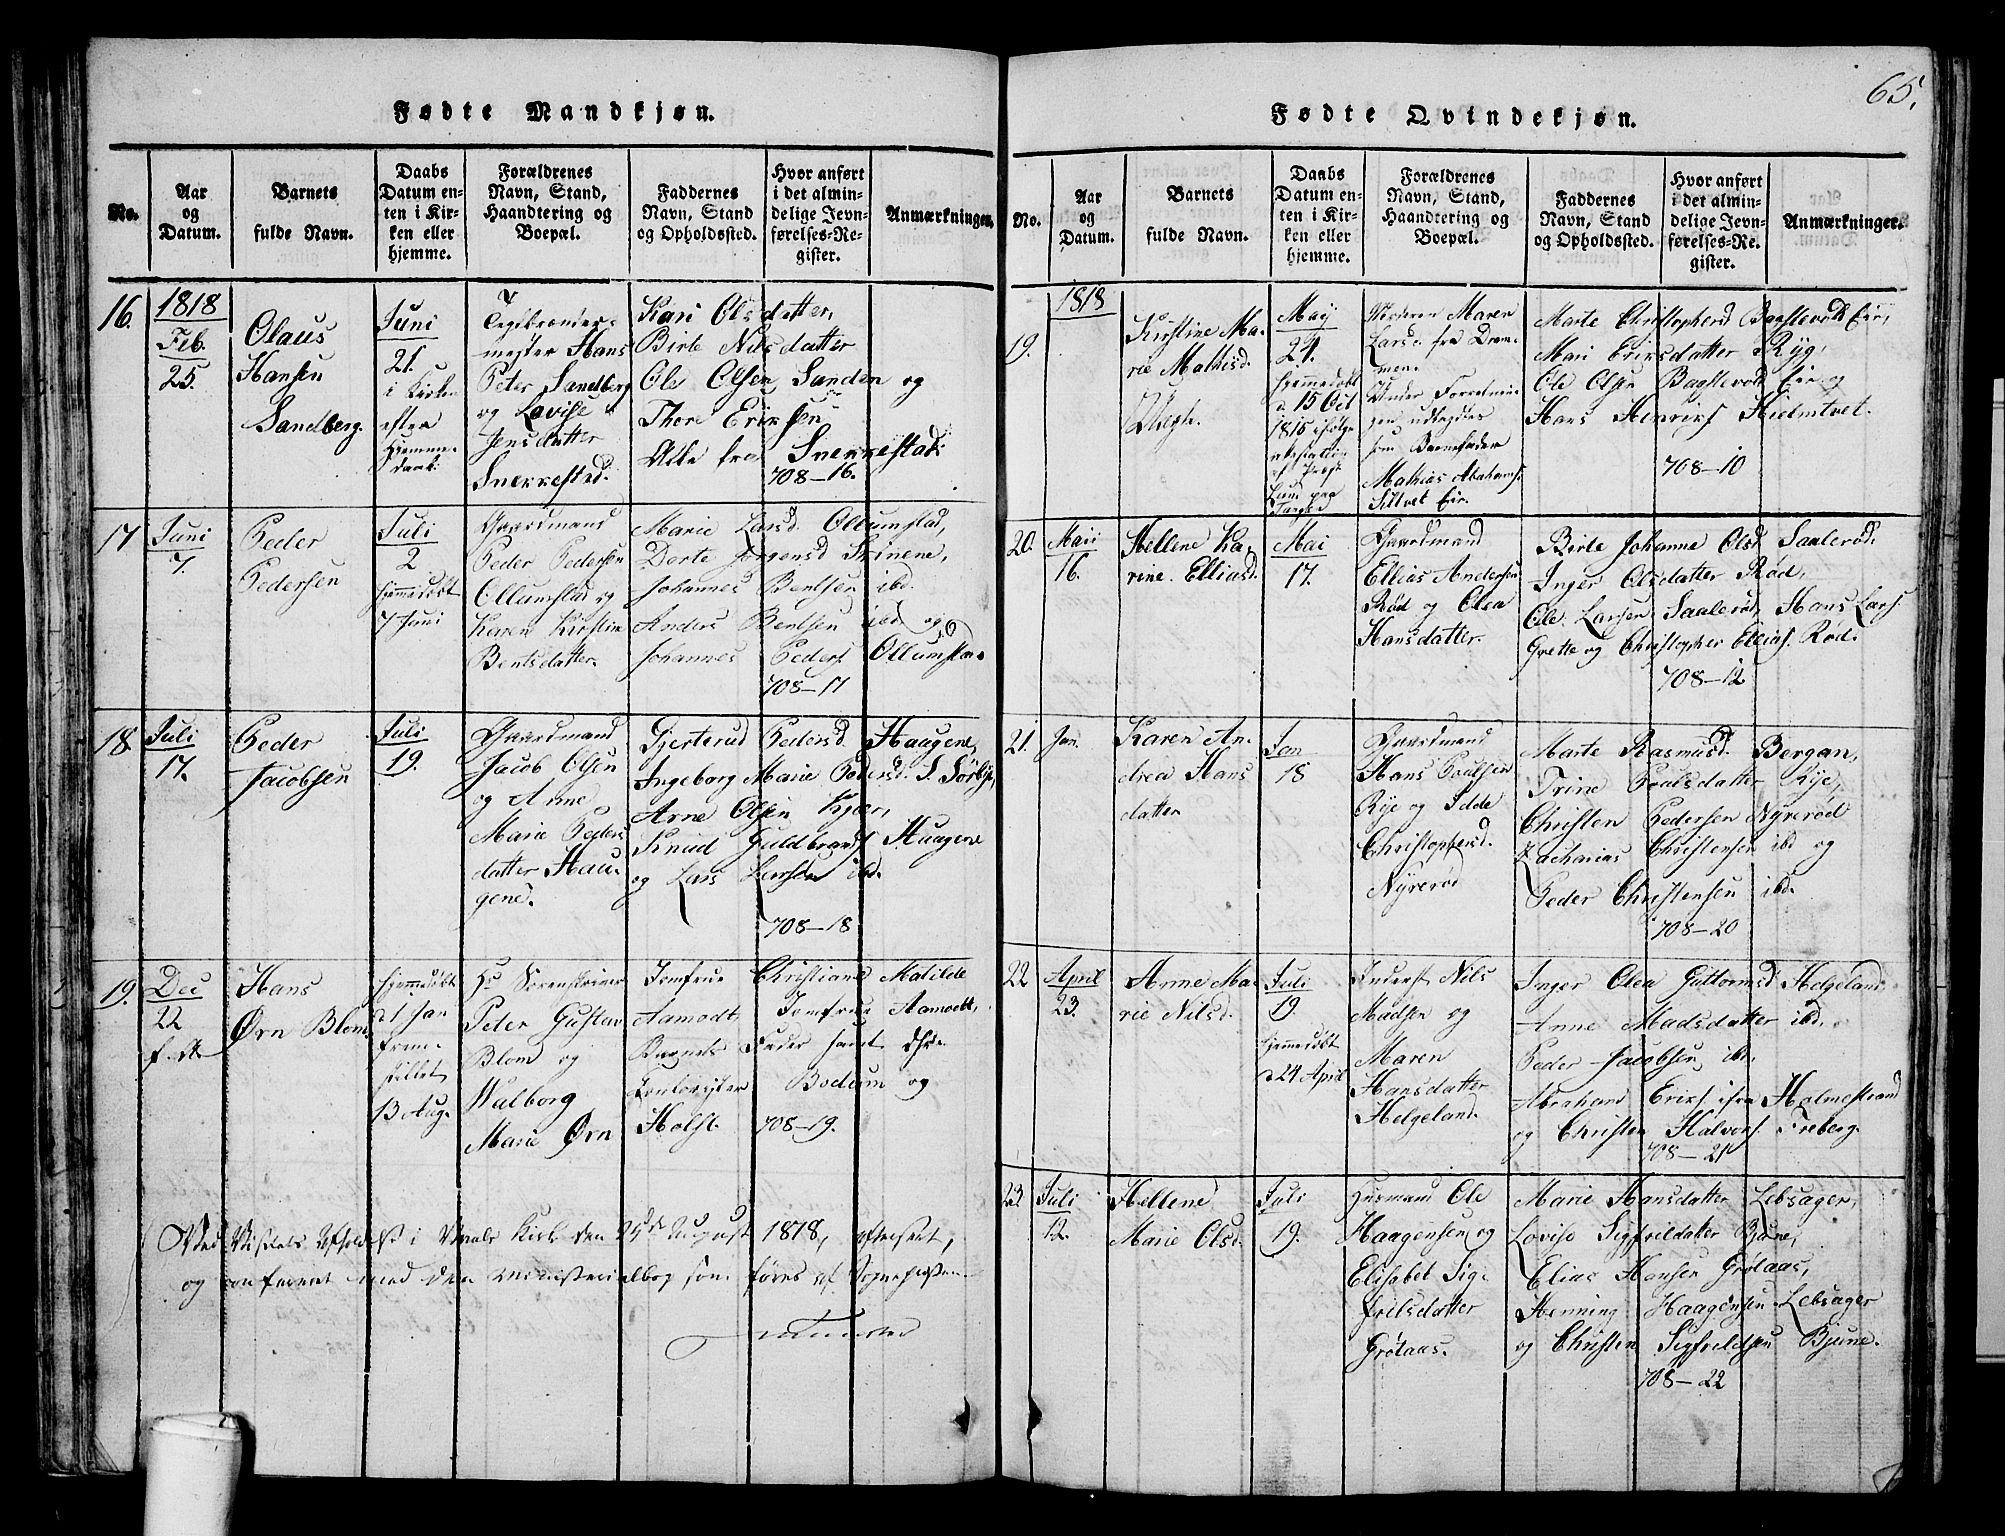 65.
Fødte Mandkjøn.
No.
Aar
og
Datum.
Barnets
fulde Navn.
Daabs
Datum en-
ten i Kir-
ken eller
hjemme.
Forældrenes
Navn, Stand,
Haandtering og
Boepæl.
Faddernes
Navn, Stand
og Opholdssted.
Hvor anført
i det almin-
delige Jevn-
førelses-Re-
gister.
Anmærkninger.
16.
1818
Feb.
25.
Olaus
Hansen
Sandberg.
Juni
21.
i Kirken
efter
Hjemme-
daab.
mester Hans
Peter Sandberg
og Lovise
Jensdatter
Snekkestad.
Kari Olsdatter,
Birte Nilsdatter
Ole Olsen Sanden og
Thore Eriksen
Alle fra Snekkestad.
708-16.
17
Juni
7.
Peder
Pedersen
Juli
2
hjemmedøbt
7 Juni
Gaardmand
Peder Pedersen
Ollumstad og
Karen Kirstine
Bentsdatter.
Marie Larsd. Ollumstad,
Dorte Jörgensd Skinene,
Johannes Bentsen ibd.
Anders Bentsen ibd og
Johannes Peders. Ollumstad
708-17
18
Juli
17.
Peder
Jacobsen
Juli
19.
Gaardmand
Jacob Olsen
og Anne
Marie Peders
datter Hau-
gene.
Gjerterud Pedersd. Haagene,
Ingeborg Marie Pedersd. S. Sörbye,
Arne Olsen Kjær,
Knud Guldbrands Haagene
og Lars Larsen ibd.
708-18
19.
Dec
22
Hans
Ørn Blom.
hjemmedøbt
21 Jan
frem-
stillet
13 Aug.
Hr Sorenskriver
Peter Gustav
Blom og
Walborg
Marie Ørn
Jomfrue Christiane Matilde
Aamodt, Jomfrue Aamodt,
Barnets Fader samt Hr.
Bodum og
Holst.
708-19.
Ved Visitats afholdelse i Vaale Kirke den 25de August 1818, efterseet,
og confereret med den Ministerialbog som føres af Sognepresten
Fødte Qvindekjøn.
No.
Aar
og
Datum.
Barnets
fulde Navn.
Daabs
Datum en-
ten i Kir-
ken eller
hjemme.
Forældrenes
Navn, Stand,
Haandtering og
Boepæl.
Faddernes
Navn, Stand
og Opholdssted.
Hvor anført
i det almin-
delige Jevn-
førelses-Re-
gister.
Anmærkninger.
19.
1818
Kirstine Ma-
rie Mathisd.
Uægte.
May
24.
hjemmedøbt
d. 15 Oct
1815 ifølge
Moderen Maren
Larsd. fra Dram-
men.
som Barnefader
Mathias Abrahams.
Siltvet Eir.
Marte Christophersd Bagsterød Eir,
Mari Eriksdatter Ryg,
Ole Olsen Bagsterød Eir og
Hans Henriks Hielmtvet.
708-10
20.
Mari
16.
Hellene Ka-
rine Elliasd.
Mai
17.
Gaardmand
Ellias Andersen
Rød og Olea
Hansdatter.
Birte Johanne Olsd Saalerød,
Inger Olsdatter Rød,
Ole Larsen Saalerød, Hans Lars.
Grette og Christopher Ellias. Rød.
708-12
21.
Jan.
Karen An-
drea Hans
datter
Jan
18
Gaardmand
Hans Poulsen
Rye og Idde
Christophersd.
Nyrerød
Marte Rasmusd Bergan,
Trine Poulsdatter Rye,
Christen Pedersen Nyrerød
Zacharias Christensen ibd og
Peder Christensen ibd.
708-20
22
April
23.
Anne Ma-
rie Nilsd.
Juli
19.
hjemmedøbt
d 24 April
Inderst Nils
Madsen og
Maren
Hansdatter
Helgeland.
Inger Olea Guttormsd Helgeland
Anne Madsdatter ibd,
Peder Jacobsen ibd,
Abraham Eriks. ifra Holmestrand
og Christen Halvors. Freberg.
708-21
23
Juli
12.
Hellene
Marie Olsd.
Juli
19.
Husmand Ole
Haagensen og
Elisabet Sig-
frilsdatter
Grötaas.
Marie Hansdatter Lebsager,
Lovise Sigfrildatter Bjune,
Elias Hansen Grötaas,
Henning Haagensen Lebsager
og Christen Sigfrildsen Bjune.
708-22